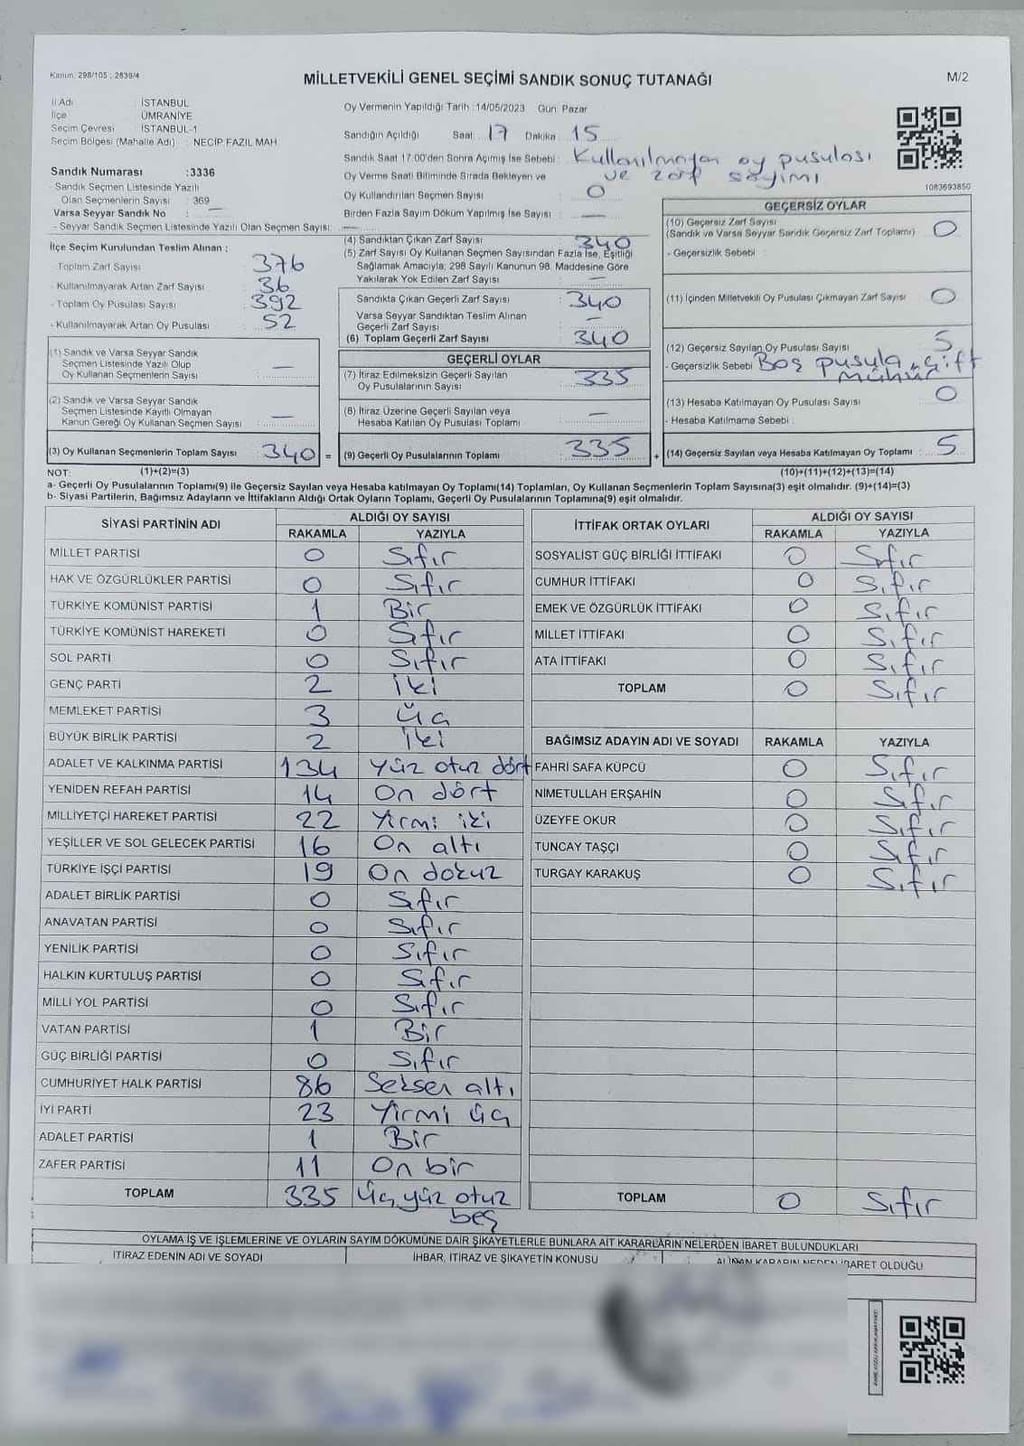 Kanun: 298/105 ; 2839/4
MİLLETVEKİLİ GENEL SEÇİMİ SANDIK SONUÇ TUTANAĞI
M/2
İl Adı İSTANBUL
İlçe ÜMRANİYE
Seçim Çevresi İSTANBUL-1
Seçim Bölgesi (Mahalle Adı) : NECİP FAZIL MAH.
Sandık Numarası :3336
- Sandık Seçmen Listesinde Yazılı
Olan Seçmenlerin Sayısı : 369
Varsa Seyyar Sandık No : —
- Seyyar Sandık Seçmen Listesinde Yazılı Olan Seçmen Sayısı: —
İlçe Seçim Kurulundan Teslim Alınan :
- Toplam Zarf Sayısı 376
- Kullanılmayarak Artan Zarf Sayısı 36
- Toplam Oy Pusulası Sayısı 392
- Kullanılmayarak Artan Oy Pusulası 52
(1) Sandık ve Varsa Seyyar Sandık
Seçmen Listesinde Yazılı Olup
Oy Kullanan Seçmenlerin Sayısı —
(2) Sandık ve Varsa Seyyar Sandık
Seçmen Listesinde Kayıtlı Olmayan
Kanun Gereği Oy Kullanan Seçmen Sayısı —
(3) Oy Kullanan Seçmenlerin Toplam Sayısı 340 =
Oy Vermenin Yapıldığı Tarih : 14/05/2023 Gün: Pazar
Sandığın Açıldığı Saat 17 Dakika 15
Sandık Saat 17.00'den Sonra Açılmış İse Sebebi : Kullanılmayan oy pusulası
ve zarf sayımı
Oy Verme Saati Bitiminde Sırada Bekleyen ve
Oy Kullandırılan Seçmen Sayısı 0
Birden Fazla Sayım Döküm Yapılmış İse Sayısı —
(4) Sandıktan Çıkan Zarf Sayısı 340
(5) Zarf Sayısı Oy Kullanan Seçmen Sayısından Fazla İse, Eşitliği
Sağlamak Amacıyla; 298 Sayılı Kanunun 98. Maddesine Göre
Yakılarak Yok Edilen Zarf Sayısı —
Sandıkta Çıkan Geçerli Zarf Sayısı 340
Varsa Seyyar Sandıktan Teslim Alınan
Geçerli Zarf Sayısı —
(6) Toplam Geçerli Zarf Sayısı 340
GEÇERLİ OYLAR
(7) İtiraz Edilmeksizin Geçerli Sayılan
Oy Pusulalarının Sayısı 335
(8) İtiraz Üzerine Geçerli Sayılan veya
Hesaba Katılan Oy Pusulası Toplamı —
(9) Geçerli Oy Pusulalarının Toplamı 335 +
1083693850
GEÇERSİZ OYLAR
(10) Geçersiz Zarf Sayısı
(Sandık ve Varsa Seyyar Sandık Geçersiz Zarf Toplamı) 0
- Geçersizlik Sebebi :
(11) İçinden Milletvekili Oy Pusulası Çıkmayan Zarf Sayısı 0
(12) Geçersiz Sayılan Oy Pusulası Sayısı 5
- Geçersizlik Sebebi : Boş pusula, çift
mühür
(13) Hesaba Katılmayan Oy Pusulası Sayısı 0
- Hesaba Katılmama Sebebi :
(14) Geçersiz Sayılan veya Hesaba Katılmayan Oy Toplamı 5
NOT: (1)+(2)=(3) (10)+(11)+(12)+(13)=(14)
a- Geçerli Oy Pusulalarının Toplamı(9) ile Geçersiz Sayılan veya Hesaba katılmayan Oy Toplamı(14) Toplamları, Oy Kullanan Seçmenlerin Toplam Sayısına(3) eşit olmalıdır. (9)+(14)=(3)
b- Siyasi Partilerin, Bağımsız Adayların ve İttifakların Aldığı Ortak Oyların Toplamı, Geçerli Oy Pusulalarının Toplamına(9) eşit olmalıdır.
SİYASİ PARTİNİN ADI ALDIĞI OY SAYISI
RAKAMLA YAZIYLA
MİLLET PARTİSİ 0 Sıfır
HAK VE ÖZGÜRLÜKLER PARTİSİ 0 Sıfır
TÜRKİYE KOMÜNİST PARTİSİ 1 Bir
TÜRKİYE KOMÜNİST HAREKETİ 0 Sıfır
SOL PARTİ 0 Sıfır
GENÇ PARTİ 2 İki
MEMLEKET PARTİSİ 3 Üç
BÜYÜK BİRLİK PARTİSİ 2 İki
ADALET VE KALKINMA PARTİSİ 134 Yüz otuz dört
YENİDEN REFAH PARTİSİ 14 On dört
MİLLİYETÇİ HAREKET PARTİSİ 22 Yirmi iki
YEŞİLLER VE SOL GELECEK PARTİSİ 16 On altı
TÜRKİYE İŞÇİ PARTİSİ 19 On dokuz
ADALET BİRLİK PARTİSİ 0 Sıfır
ANAVATAN PARTİSİ 0 Sıfır
YENİLİK PARTİSİ 0 Sıfır
HALKIN KURTULUŞ PARTİSİ 0 Sıfır
MİLLİ YOL PARTİSİ 0 Sıfır
VATAN PARTİSİ 1 Bir
GÜÇ BİRLİĞİ PARTİSİ 0 Sıfır
CUMHURİYET HALK PARTİSİ 86 Seksen altı
İYİ PARTİ 23 Yirmi üç
ADALET PARTİSİ 1 Bir
ZAFER PARTİSİ 11 On bir
TOPLAM 335 Üçyüz otuz
beş
İTTİFAK ORTAK OYLARI ALDIĞI OY SAYISI
RAKAMLA YAZIYLA
SOSYALİST GÜÇ BİRLİĞİ İTTİFAKI 0 Sıfır
CUMHUR İTTİFAKI 0 Sıfır
EMEK VE ÖZGÜRLÜK İTTİFAKI 0 Sıfır
MİLLET İTTİFAKI 0 Sıfır
ATA İTTİFAKI 0 Sıfır
TOPLAM 0 Sıfır
BAĞIMSIZ ADAYIN ADI VE SOYADI RAKAMLA YAZIYLA
FAHRİ SAFA KÜPCÜ 0 Sıfır
NİMETULLAH ERŞAHİN 0 Sıfır
ÜZEYFE OKUR 0 Sıfır
TUNCAY TAŞÇI 0 Sıfır
TURGAY KARAKUŞ 0 Sıfır
TOPLAM 0 Sıfır
OYLAMA İŞ VE İŞLEMLERİNE VE OYLARIN SAYIM DÖKÜMÜNE DAİR ŞİKAYETLERLE BUNLARA AİT KARARLARIN NELERDEN İBARET BULUNDUKLARI
İTİRAZ EDENİN ADI VE SOYADI İHBAR, İTİRAZ VE ŞİKAYETİN KONUSU ALINAN KARARIN NEDEN İBARET OLDUĞU